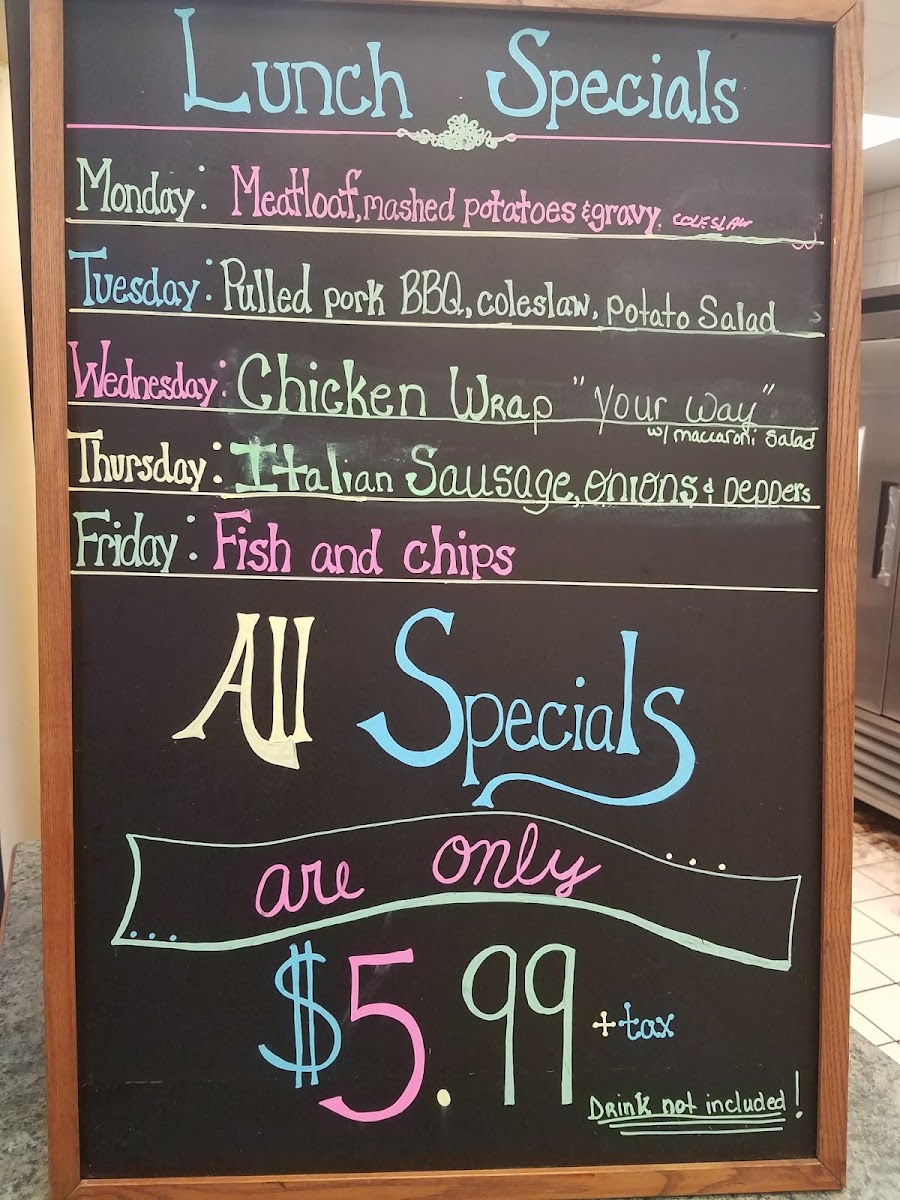 Lunch Specials
Monday: Meatloaf, mashed potatoes & gravy. COLESLAW
Tuesday: Pulled pork BBQ, coleslaw, potato Salad
Wednesday: Chicken Wrap "your way"
w/ maccaroni salad
Thursday: Italian Sausage, onions & peppers
Friday: Fish and chips
All Specials
are only
$5.99 + tax
Drink not included!